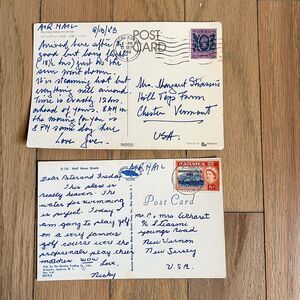 AIR MAIL
POST
CARD
Arrived here after big
good but long flight
18½ hrs just as the
sun went down.
It is steaming hot but
everything well around.
Time is exactly 12 hrs.
ahead of yours. 8 AM
in the morning for you is
8 PM same day here
Love
Mrs. Margaret
Hill Top Farm
Chester Vermont
USA.
AIR MAIL
JAMAICA
Half Moon Beach
Post Card
Dear &
This place is
really heaven. The
water for swimming
is perfect. Today I
am going to play golf
on a very famous
golf course were the
professionals play their
matches WOW
Love,
Nicky
Mr & Mrs
c/o
Youngs Road
New Vernon
New Jersey
U.S.A.